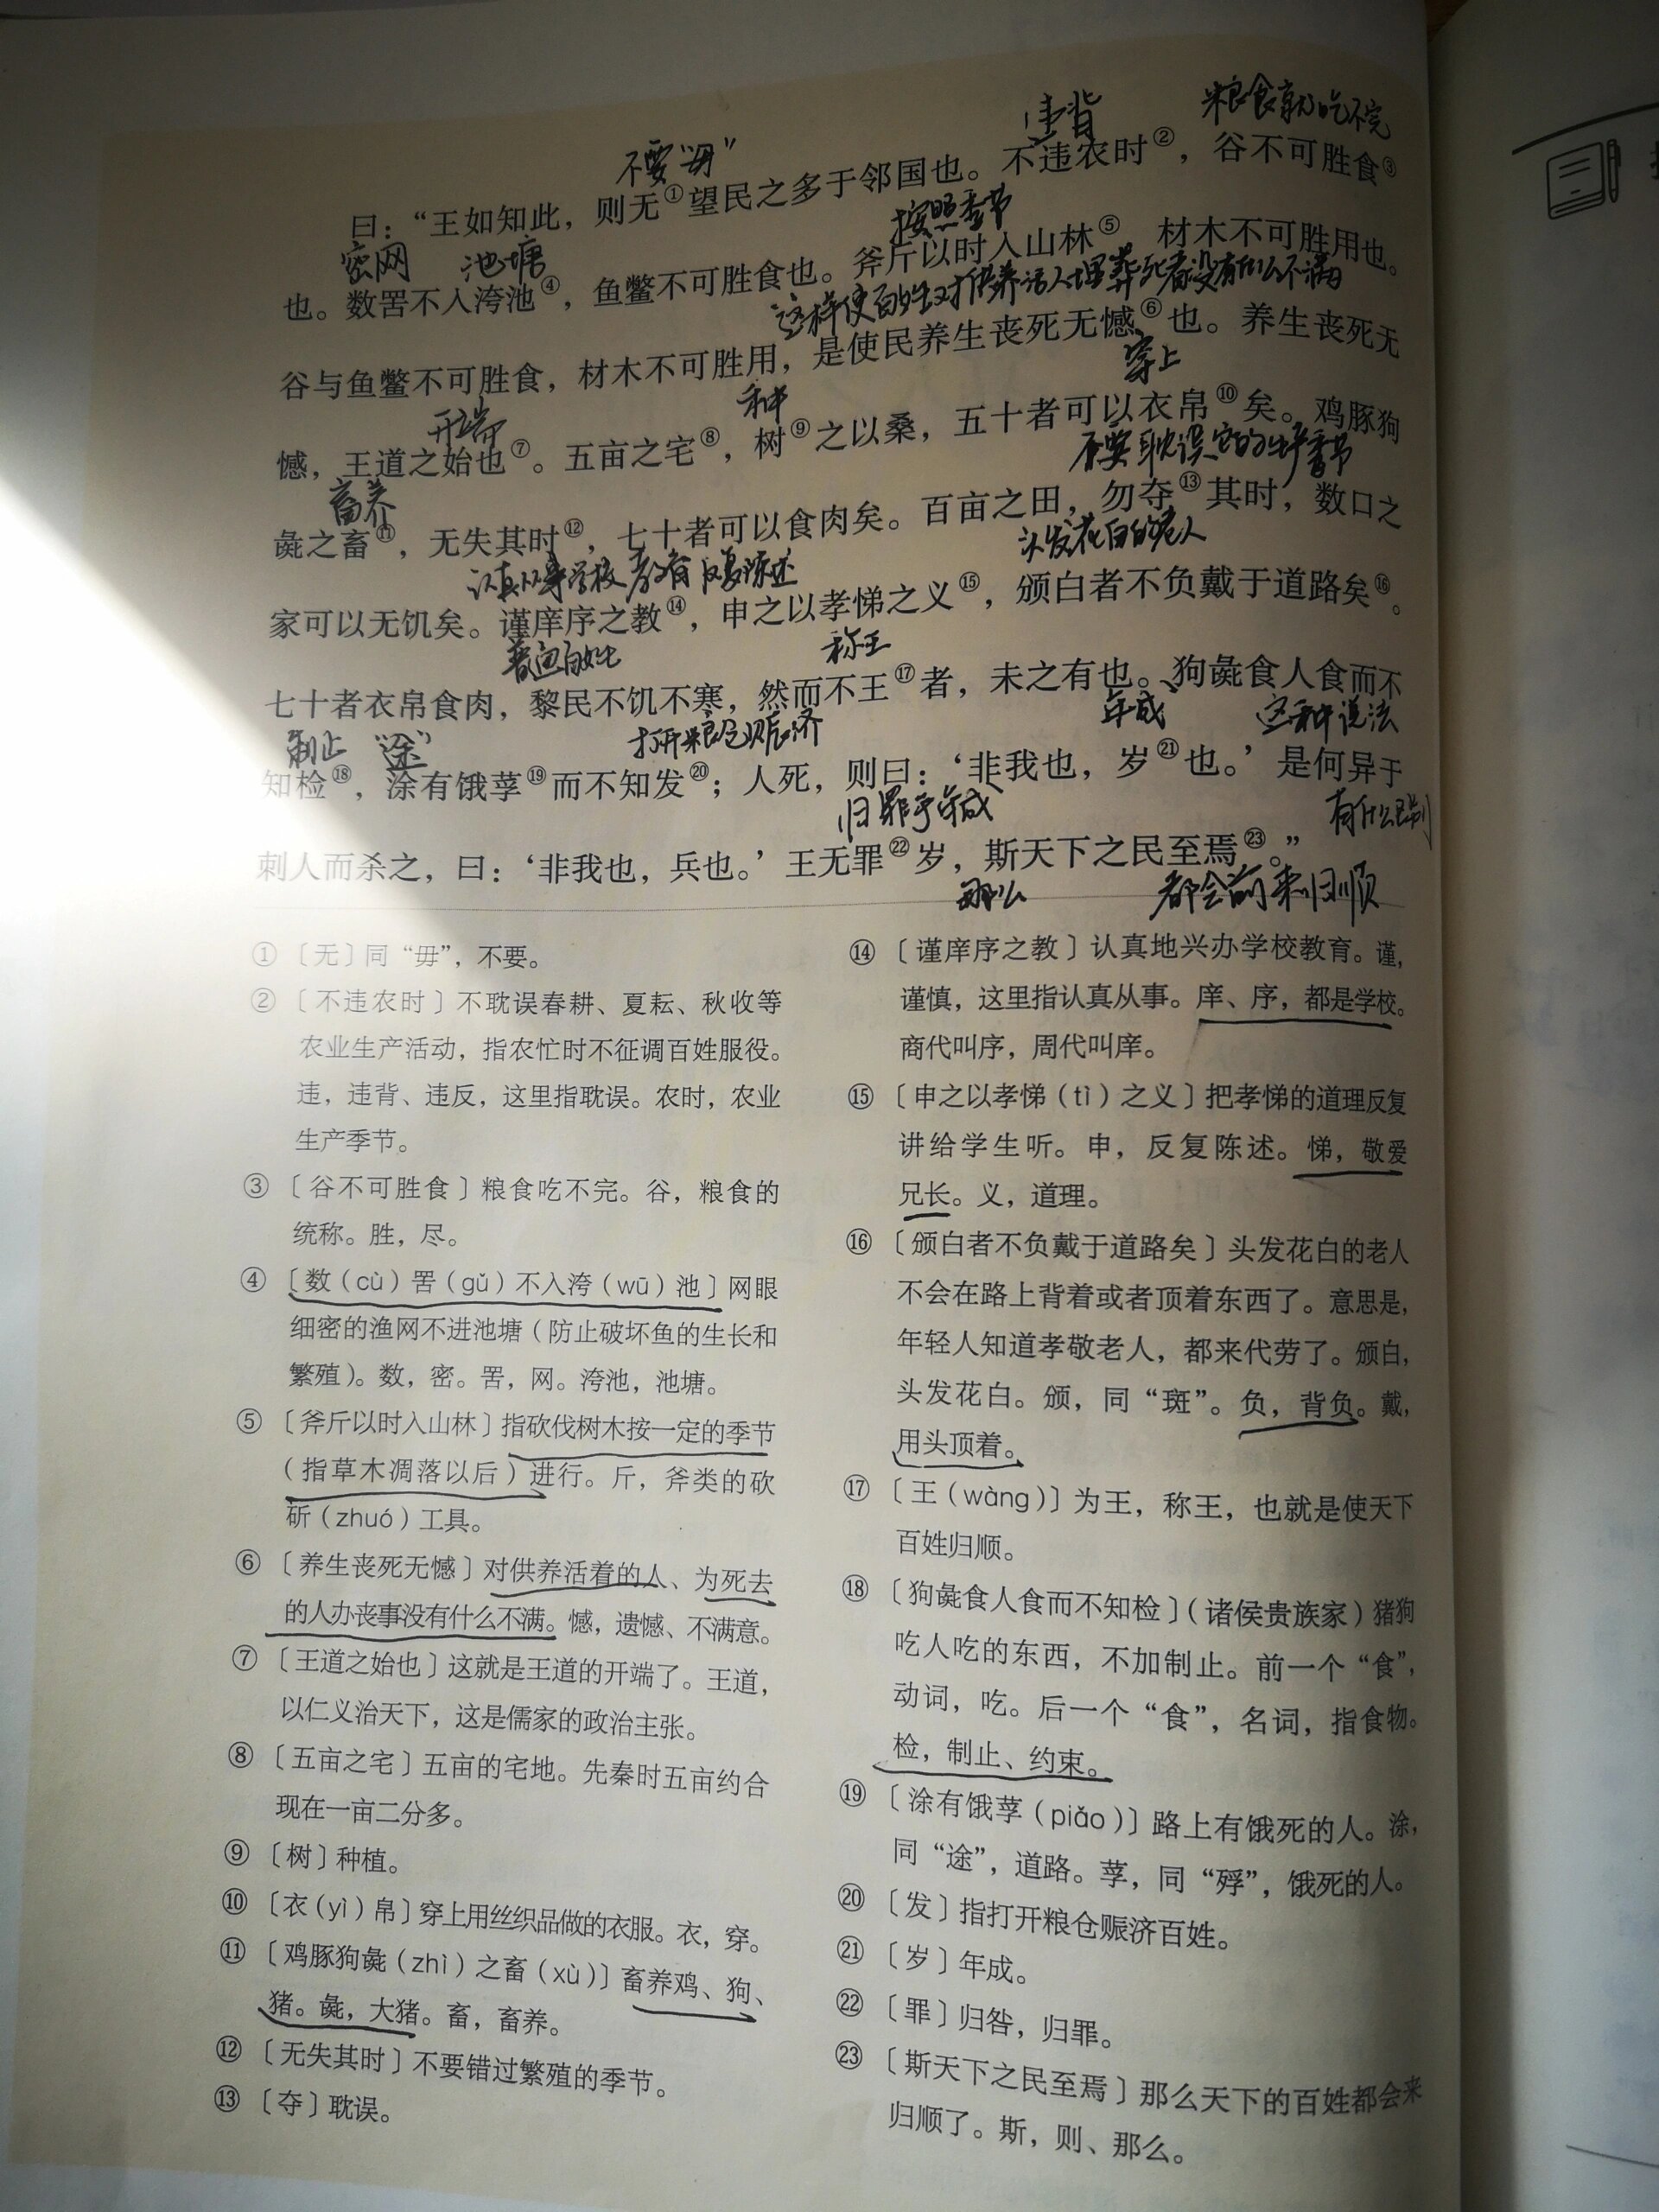 违背 粮食就吃不完
不要“毋”
曰：“王如知此，则无①望民之多于邻国也。不违农时②，谷不可胜食③
密网 池塘 按照季节
也。数罟不入洿池④，鱼鳖不可胜食也。斧斤以时入山林⑤，材木不可胜用也。
这样使百姓对供养活人埋葬死者没有什么不满
谷与鱼鳖不可胜食，材木不可胜用，是使民养生丧死无憾⑥也。养生丧死无
开端 种 穿上
憾，王道之始也⑦。五亩之宅⑧，树⑨之以桑，五十者可以衣帛⑩矣。鸡豚狗
畜养 不要耽误它的生产季节
彘之畜⑪，无失其时⑫，七十者可以食肉矣。百亩之田，勿夺⑬其时，数口之
认真从事学校教育 反复陈述 头发花白的老人
家可以无饥矣。谨庠序之教⑭，申之以孝悌之义⑮，颁白者不负戴于道路矣⑯。
普通百姓 称王
七十者衣帛食肉，黎民不饥不寒，然而不王⑰者，未之有也。狗彘食人食而不
制止 “途” 打开粮仓赈济 年成 这种说法
知检⑱，涂有饿莩⑲而不知发⑳；人死，则曰：‘非我也，岁㉑也。’是何异于
归罪于年成 有什么区别
刺人而杀之，曰：‘非我也，兵也。’王无罪㉒岁，斯天下之民至焉㉓。”
那么 都会前来归顺
①〔无〕同“毋”，不要。
②〔不违农时〕不耽误春耕、夏耘、秋收等
农业生产活动，指农忙时不征调百姓服役。
违，违背、违反，这里指耽误。农时，农业
生产季节。
③〔谷不可胜食〕粮食吃不完。谷，粮食的
统称。胜，尽。
④〔数（cù）罟（gǔ）不入洿（wū）池〕网眼
细密的渔网不进池塘（防止破坏鱼的生长和
繁殖）。数，密。罟，网。洿池，池塘。
⑤〔斧斤以时入山林〕指砍伐树木按一定的季节
（指草木凋落以后）进行。斤，斧类的砍
斫（zhuó）工具。
⑥〔养生丧死无憾〕对供养活着的人、为死去
的人办丧事没有什么不满。憾，遗憾、不满意。
⑦〔王道之始也〕这就是王道的开端了。王道，
以仁义治天下，这是儒家的政治主张。
⑧〔五亩之宅〕五亩的宅地。先秦时五亩约合
现在一亩二分多。
⑨〔树〕种植。
⑩〔衣（yì）帛〕穿上用丝织品做的衣服。衣，穿。
⑪〔鸡豚狗彘（zhì）之畜（xù）〕畜养鸡、狗、
猪。彘，大猪。畜，畜养。
⑫〔无失其时〕不要错过繁殖的季节。
⑬〔夺〕耽误。
⑭〔谨庠序之教〕认真地兴办学校教育。谨，
谨慎，这里指认真从事。庠、序，都是学校。
商代叫序，周代叫庠。
⑮〔申之以孝悌（tì）之义〕把孝悌的道理反复
讲给学生听。申，反复陈述。悌，敬爱
兄长。义，道理。
⑯〔颁白者不负戴于道路矣〕头发花白的老人
不会在路上背着或者顶着东西了。意思是，
年轻人知道孝敬老人，都来代劳了。颁白，
头发花白。颁，同“斑”。负，背负。戴，
用头顶着。
⑰〔王（wàng）〕为王，称王，也就是使天下
百姓归顺。
⑱〔狗彘食人食而不知检〕（诸侯贵族家）猪狗
吃人吃的东西，不加制止。前一个“食”，
动词，吃。后一个“食”，名词，指食物。
检，制止、约束。
⑲〔涂有饿莩（piǎo）〕路上有饿死的人。涂，
同“途”，道路。莩，同“殍”，饿死的人。
⑳〔发〕指打开粮仓赈济百姓。
㉑〔岁〕年成。
㉒〔罪〕归咎，归罪。
㉓〔斯天下之民至焉〕那么天下的百姓都会来
归顺了。斯，则、那么。